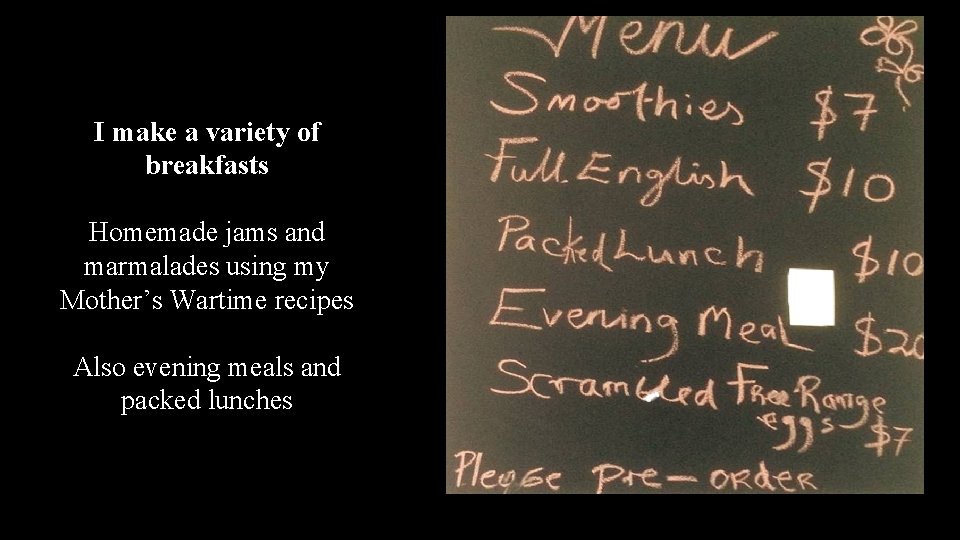 I make a variety of
breakfasts
Homemade jams and
marmalades using my
Mother’s Wartime recipes
Also evening meals and
packed lunches
Menu
Smoothies $7
Full English $10
Packed Lunch $10
Evening Meal $20
Scrambled Free Range
eggs $7
Please pre-order